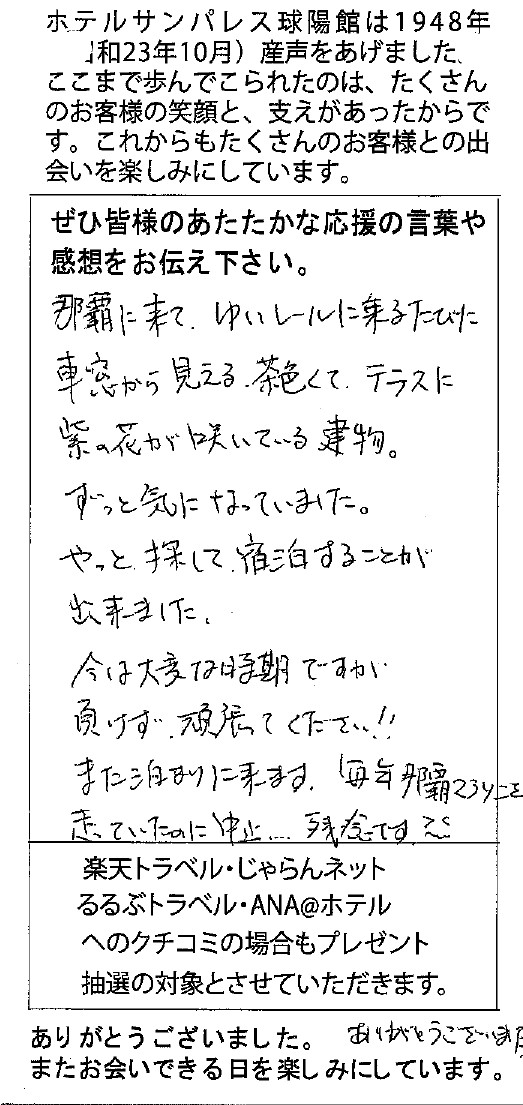 ホテルサンパレス球陽館は1948年
和23年10月）産声をあげました
ここまで歩んでこられたのは、たくさん
のお客様の笑顔と、支えがあったからで
す。これからもたくさんのお客様との出
会いを楽しみにしています。
ぜひ皆様のあたたかな応援の言葉や
感想をお伝え下さい。
那覇に来て、ゆいレールに乗るたびに
車窓から見える、茶色くて、テラスに
紫の花が咲いている建物。
ずっと気になっていました。
やっと、探して、宿泊することが
出来ました。
今は大変な時期ですが
負けず、頑張ってください!!
また泊まりに来ます。毎年那覇マラソンを
走っていたのに中止…残念です
楽天トラベル・じゃらんネット
るるぶトラベル・ANA@ホテル
へのクチコミの場合もプレゼント
抽選の対象とさせていただきます。
ありがとうございました。 ありがとうございます
またお会いできる日を楽しみにしています。